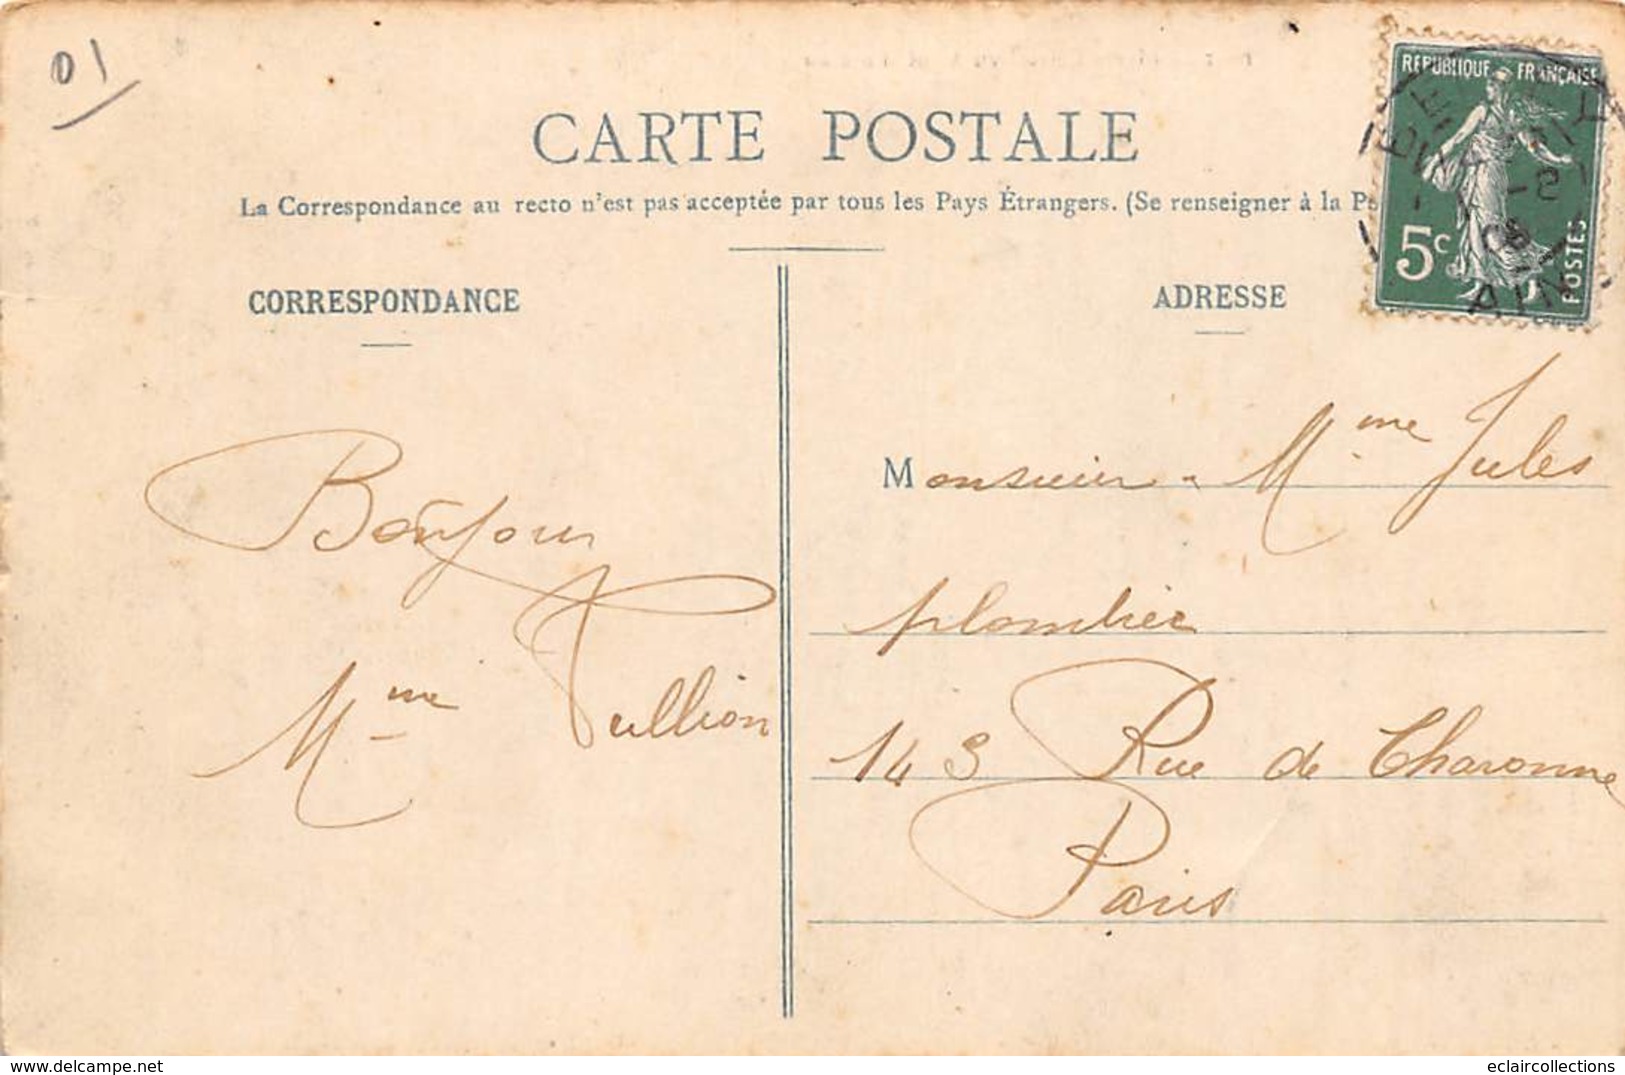 01
CARTE POSTALE
La Correspondance au recto n'est pas acceptée par tous les Pays Étrangers. (Se renseigner à la
REPUBLIQUE FRANÇAISE
5c
POSTES
AIN
CORRESPONDANCE
ADRESSE
Bonjour
Mme Tullion
Monsieur Mme Jules
plombier
143 Rue de Charonne
Paris
eclaircollections